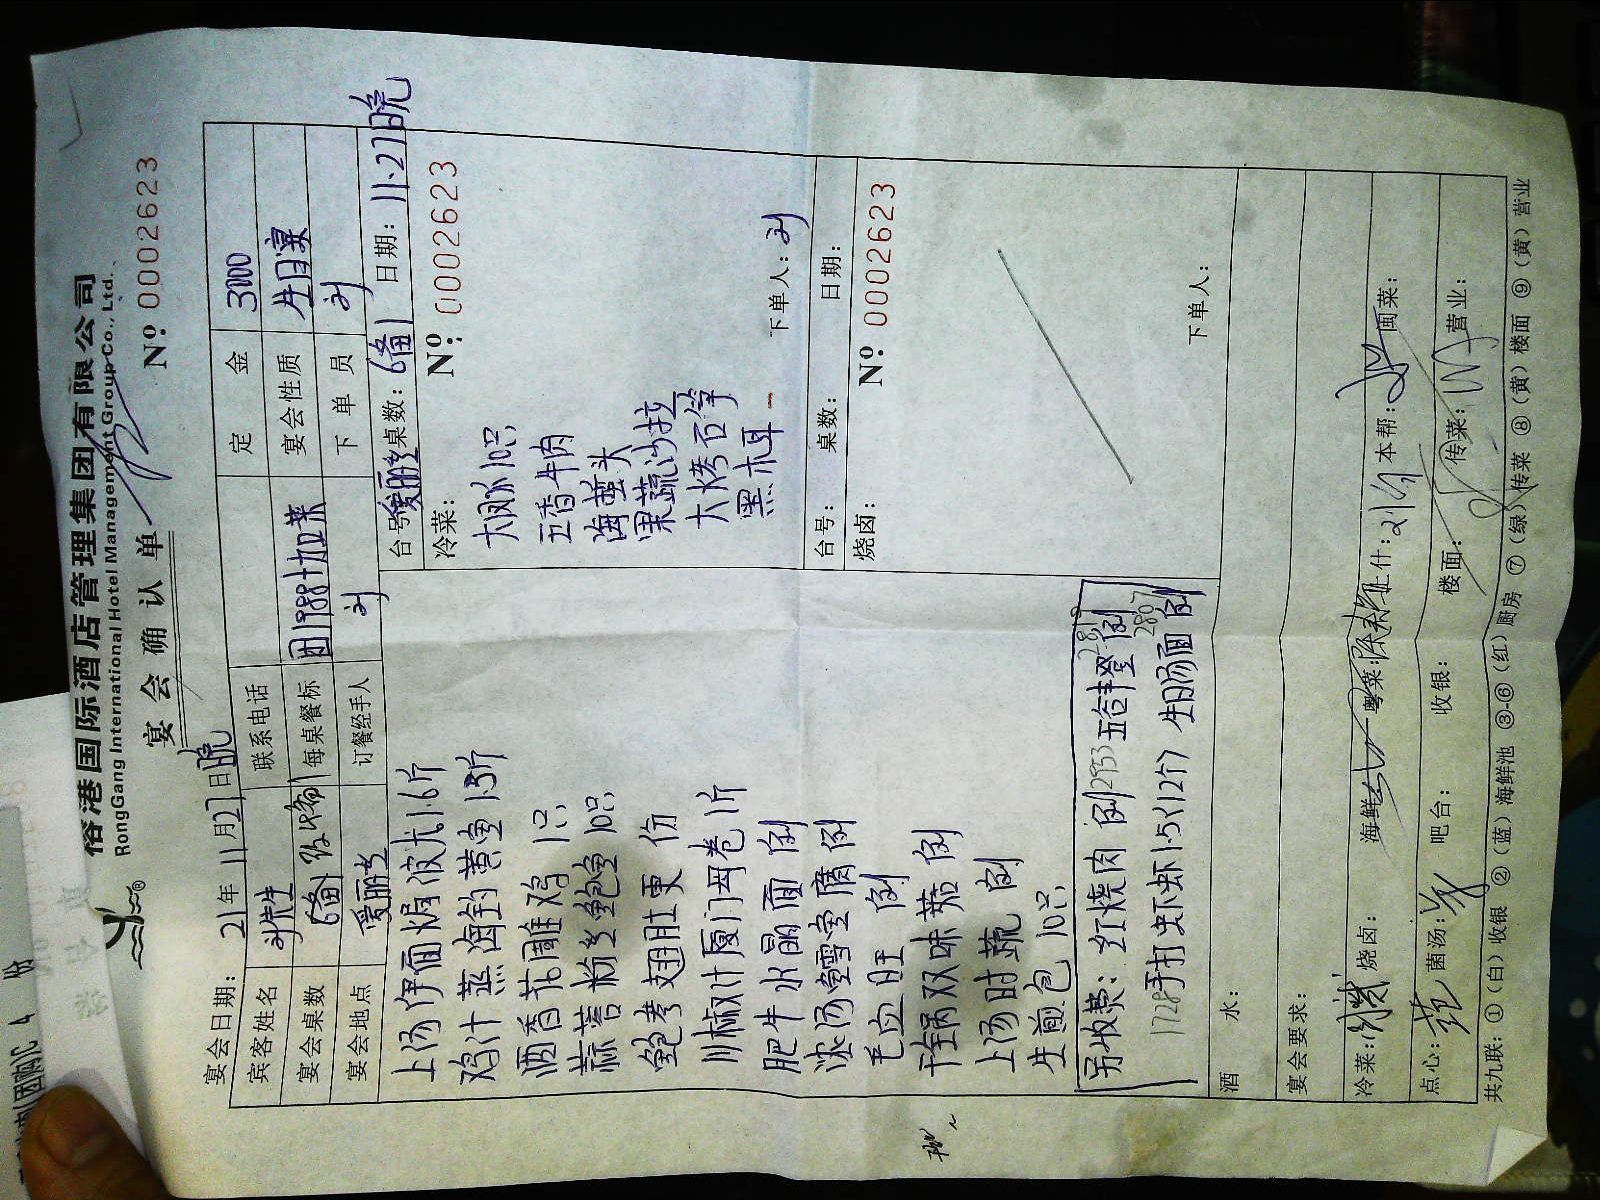 榕港国际酒店管理集团有限公司
RongGang International Hotel Management Group Co., Ltd.
宴会确认单
№ 0002623
宴会日期: 21年 11月27日晚
宾客姓名 刘先生 联系电话 定金 3000
宴会桌数 6备1 每桌餐标 团1988+加菜 宴会性质 生日宴
宴会地点 爱丽丝 订餐经手人 刘 下单员 刘
上汤伊面焗波龙1.6斤
鸡汁蒸海钓黄鱼1.3斤
酒香花雕鸡 1只
蒜蓉粉丝鲍鱼 10只
鲍参翅肚羹 份
川椒汁厦门母卷1斤
肥牛水晶面 例
浓汤鳕鱼腐 例
毛血旺 例
干锅双味菇 例
上汤时蔬 例
生煎包 10只
另收费: 红烧肉 例 五谷丰登 例
手打虾1.5(12个) 生日汤面 例
台号: 爱丽丝 桌数: 6备1 日期: 11.27日晚
冷菜: № 0002623
大凤爪10只
五香牛肉
海蜇头
果蔬沙拉
大烤石笋
黑木耳
下单人: 刘
台号: 桌数: 日期:
烧卤: № 0002623
下单人:
酒水:
宴会要求:
冷菜: 烧卤: 海鲜: 粤菜: 上什: 本帮: 闽菜:
点心: 菌汤: 吧台: 收银: 楼面: 传菜: 营业:
共九联: ①(白)收银 ②(蓝)海鲜池 ③-⑥(红)厨房 ⑦(绿)传菜 ⑧(黄)楼面 ⑨(黄)营业